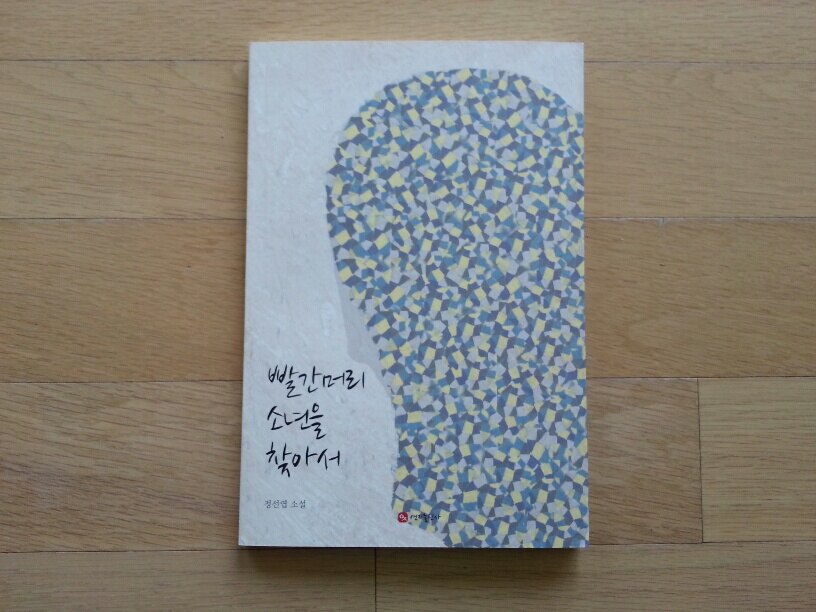 빨간머리
소년을
찾아서
정선엽 소설